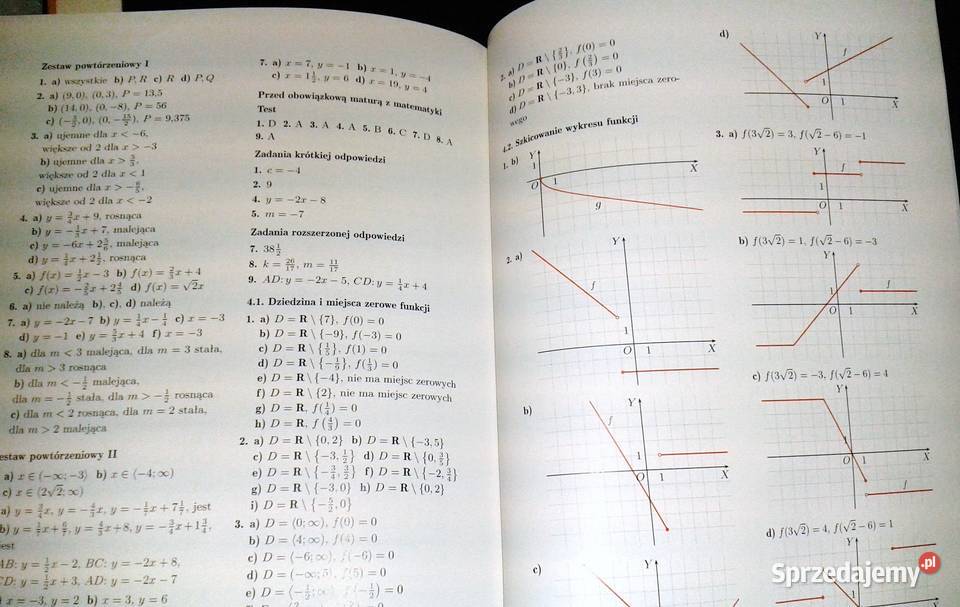 Zestaw powtórzeniowy I
1. a) wszystkie b) P, R c) R d) P, Q
2. a) (9, 0), (0, 3), P = 13,5
b) (14, 0), (0, −8), P = 56
c) (−5/2, 0), (0, −15/2), P = 9,375
3. a) ujemne dla x < −6,
większe od 2 dla x > −3
b) ujemne dla x >
większe od 2 dla x < 1
c) ujemne dla x > −6/5,
większe od 2 dla x < −2
4. a) y = 3/4x + 9, rosnąca
b) y = −1/3x + 7, malejąca
c) y = −6x + 2 5/6, malejąca
d) y = 1/2x + 2 1/2, rosnąca
5. a) f(x) = 1/2x − 3 b) f(x) = 2/3x + 4
c) f(x) = −2/5x + 2 4/5 d) f(x) = √2x
6. a) nie należą b), c), d) należą
7. a) y = −2x − 7 b) y = 1/4x − 1/4 c) x = −3
d) y = −1 e) y = 5/3x + 4 f) x = −3
8. a) dla m < 3 malejąca, dla m = 3 stała,
dla m > 3 rosnąca
b) dla m < −1/2 malejąca,
dla m = −1/2 stała, dla m > −1/2 rosnąca
c) dla m < 2 rosnąca, dla m = 2 stała,
dla m > 2 malejąca
estaw powtórzeniowy II
a) x ∈ (−∞; −3⟩ b) x ∈ ⟨−4; ∞)
c) x ∈ (2√2; ∞)
a) y = 3/4x, y = −4/3x, y = −1/7x + 7 1/7, jest
b) y = 1/7x + 6/7, y = 4/3x + 8, y = −3/4x + 1 3/4,
jest
AB: y = 1/2x − 2, BC: y = −2x + 8,
CD: y = 1/2x + 3, AD: y = −2x − 7
x = −3, y = 2 b) x = 3, y = 6
7. a) x = 7, y = −1 b) x = 1, y = −4
c) x = 1 1/2, y = 6 d) x = 19, y = 4
Przed obowiązkową maturą z matematyki
Test
1. D 2. A 3. A 4. A 5. B 6. C 7. D 8. A
9. A
Zadania krótkiej odpowiedzi
1. c = −4
2. 9
4. y = −2x − 8
5. m = −7
Zadania rozszerzonej odpowiedzi
7. 38 1/2
8. k = 26/17, m = 11/17
9. AD: y = −2x − 5, CD: y = 1/4x + 4
4.1. Dziedzina i miejsca zerowe funkcji
1. a) D = R \ {7}, f(0) = 0
b) D = R \ {−9}, f(−3) = 0
c) D = R \ {1/5}, f(1) = 0
d) D = R \ {−1/9}, f(1/3) = 0
e) D = R \ {−4}, nie ma miejsc zerowych
f) D = R \ {2}, nie ma miejsc zerowych
g) D = R, f(1/4) = 0
h) D = R, f(4/3) = 0
2. a) D = R \ {0, 2} b) D = R \ {−3, 5}
c) D = R \ {−3, 1/2} d) D = R \ {0, 3/5}
e) D = R \ {−3/4, 3/2} f) D = R \ {−2, 3/4}
g) D = R \ {−3, 0} h) D = R \ {0, 2}
i) D = R \ {−5/2, 0}
3. a) D = ⟨0; ∞), f(0) = 0
b) D = ⟨4; ∞), f(4) = 0
c) D = ⟨−6; ∞), f(−6) = 0
d) D = (−∞; 5⟩, f(5) = 0
e) D = ⟨−1/2; ∞), f(−1/2) = 0
2. a) D = R \ {2/5}, f(0) = 0
b) D = R \ {0}, f(2/3) = 0
c) D = R \ {−3}, f(3) = 0
d) D = R \ {−3, 3}, brak miejsca zero-
wego
4.2. Szkicowanie wykresu funkcji
1. b)
Y
1
O 1 X
g
2. a)
Y
f
1
O 1 X
b)
Y
f
1
O 1 X
c)
Y
d)
Y
f
O 1 X
3. a) f(3√2) = 3, f(√2 − 6) = −1
Y
f
1
O 1 X
b) f(3√2) = 1, f(√2 − 6) = −3
Y
1
f
O 1 X
c) f(3√2) = −3, f(√2 − 6) = 4
Y
1
O 1 X
f
d) f(3√2) = 4, f(√2 − 6) = 1
Y
Sprzedajemy.pl